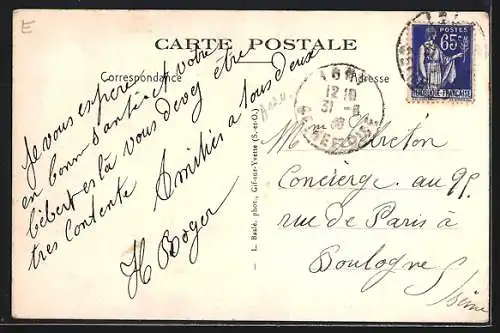 E
CARTE POSTALE
Correspondance
Adresse
POSTES
65c
REPUBLIQUE FRANÇAISE
12 10
31 -8
Je vous espere
en bonn santé et votre
bébert est là vous devez être
tres contente Amitiés a tous deux
H Boger
L. Basle, phot., Gif-sur-Yvette (S.-et-O.)
Mme Breton
Concièrge. au 99.
rue de Paris à
Boulogne s/
Seine